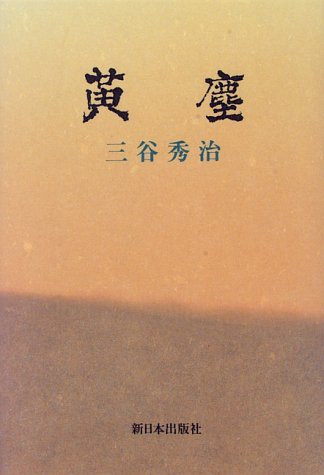 黄塵
三谷秀治
新日本出版社